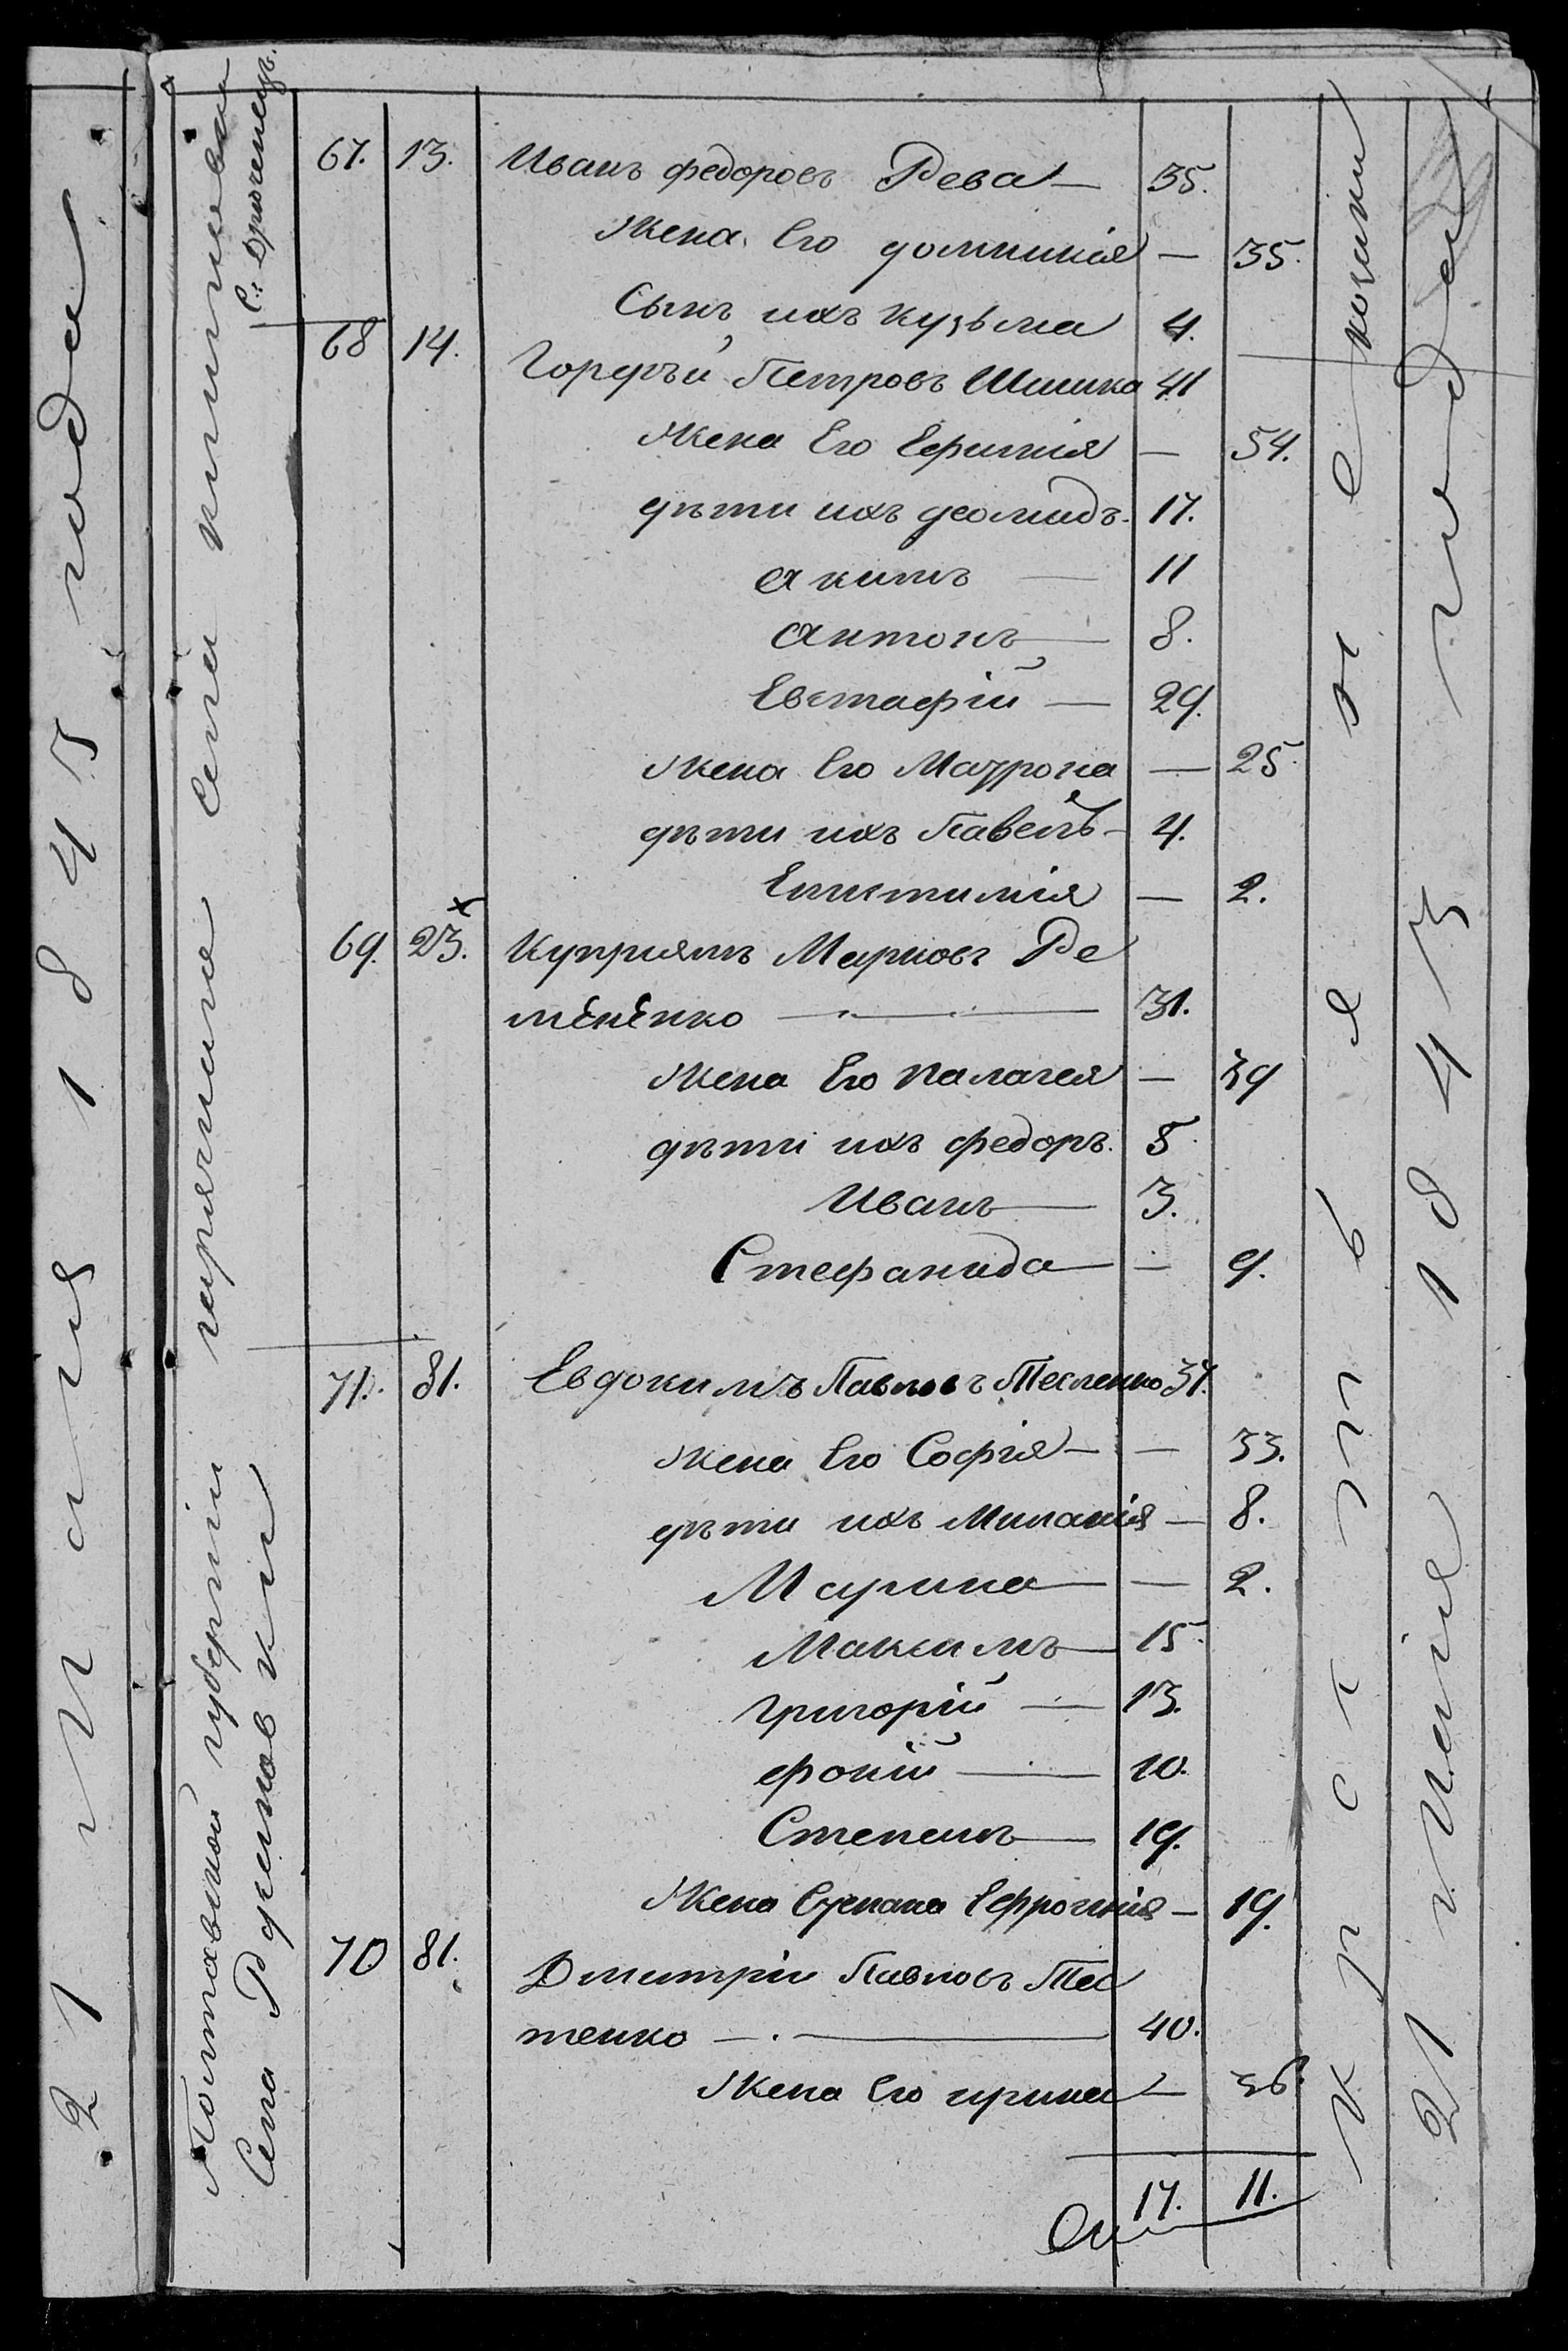 21 Июня 1843 года
Полтавской губернии пирятинскаго
Села Рудовки
С: Дрюченец.
67. 13. Иванъ федоровъ Рева — 35.
Жена Его домникія — 35.
Сынъ ихъ кузьма 4.
68 14. Горфѣй Петровъ Шишка 41
Жена Его Ефимия — 54.
дѣти ихъ деомидъ. 17.
акимъ — 11
антонъ — 8.
Евстафій — 29.
жена Его Матрона — 25.
дѣти ихъ Павелъ — 4.
Епистимія — 2.
69. 23. Куприянъ Марковъ Ре
тененко — 31.
жена Его палагея — 39
дѣти ихъ федоръ. 5.
Иванъ — 3.
Стефанида — 9.
71. 81. Евдокимъ Павловъ Тесленко 37.
жена Его Софія — — 33.
дѣти ихъ Миланія — 8.
Марина — — 2.
Максимъ — 15.
григорій — 13.
фокій — 10.
Степанъ — 19.
Жена Степана Ефросинія — 19.
70 81. Дмитрій Павловъ Тес
ленко — . — 40.
Жена Его ирина — 36.
17. 11.
крестьяне
козаки
21 Июня 1843 года